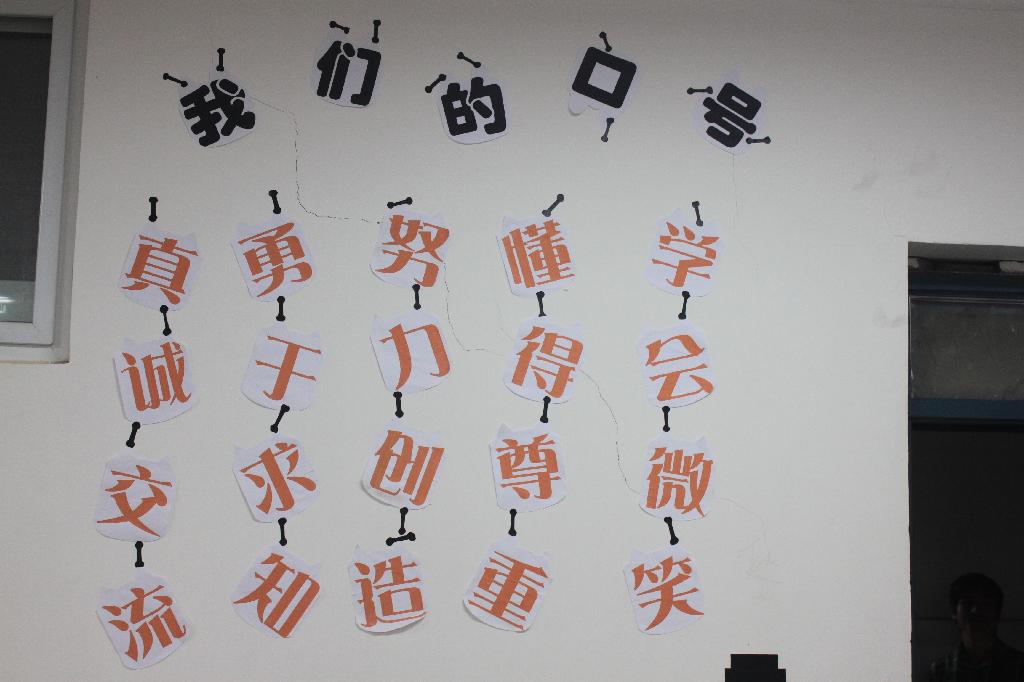 我们的口号
学会微笑
懂得尊重
努力创造
勇于求知
真诚交流